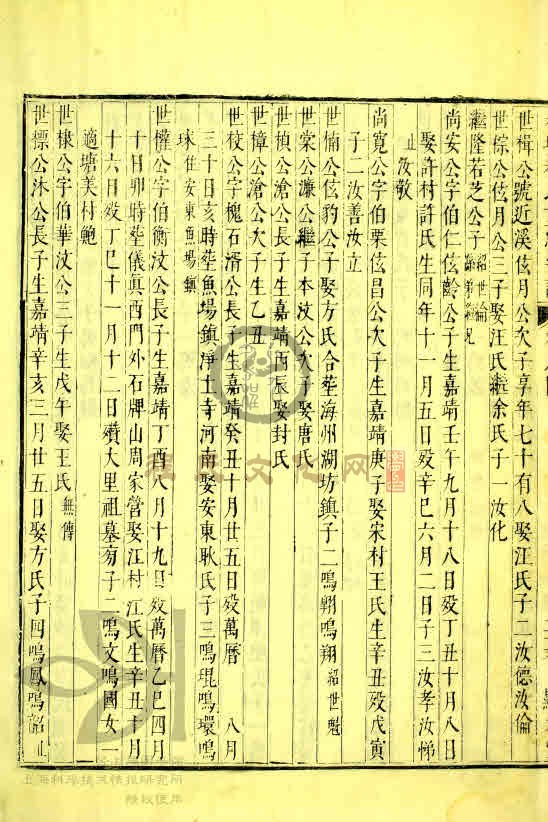 世楫公號近溪伭月公次子享年七十有八娶汪氏子二汝德汝倫
世綜公伭月公三子娶汪氏繼余氏子一汝化
繼隆若芝公子
尚安公字伯仁伭齡公子生嘉靖壬午九月十八日歿丁丑十月八日
娶許村許氏生同年十一月五日歿辛巳六月二日子三汝孝汝悌
止汝敬
尚寬公字伯栗伭昌公次子生嘉靖庚子娶宋村王氏生辛丑歿戊寅
子二汝善汝立
世楠公伭豹公子娶方氏合塟海州湖坊鎮子二鳴翺鳴翔紹世魁
世棠公濂公繼子本汶公次子娶唐氏
世楨公滄公長子生嘉靖丙辰娶封氏
世樟公滄公次子生乙丑
世校公字槐石湑公長子生嘉靖癸丑十月廿五日歿萬曆 八月
三十日亥時塟魚場鎮淨土寺河南娶安東耿氏子三鳴琨鳴環鳴
球住安東魚場鎮
世權公字伯衡汶公長子生嘉靖丁酉八月十九日歿萬曆乙巳四月
十日卯時塟儀真西門外石牌山周家營娶江村江氏生辛丑十月
十六日歿丁巳十一月十二日殯大里祖墓旁子二鳴文鳴國女一
適塘美村鮑
世棣公字伯華汶公三子生戊午娶王氏無傳
世標公沐公長子生嘉靖辛亥三月廿五日娶方氏子四鳴鳳鳴韶止